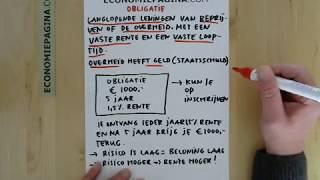 ECONOMIEPAGINA.COM
OBLIGATIE
LANGLOPENDE LENINGEN VAN BEDRIJ-
VEN OF DE OVERHEID. MET EEN
VASTE RENTE EN EEN VASTE LOOP-
TIJD.
OVERHEID HEEFT GELD (STAATSSCHULD)
OBLIGATIE
€ 1000,-
5 JAAR
1,5% RENTE
→ KUN JE
OP
INSCHRIJVEN
JE ONTVANG IEDER JAAR 1,5% RENTE
EN NA 5 JAAR KRIJG JE € 1000,-
TERUG.
→ RISICO IS LAAG = BELONING LAAG
→ RISICO HOGER → RENTE HOGER!